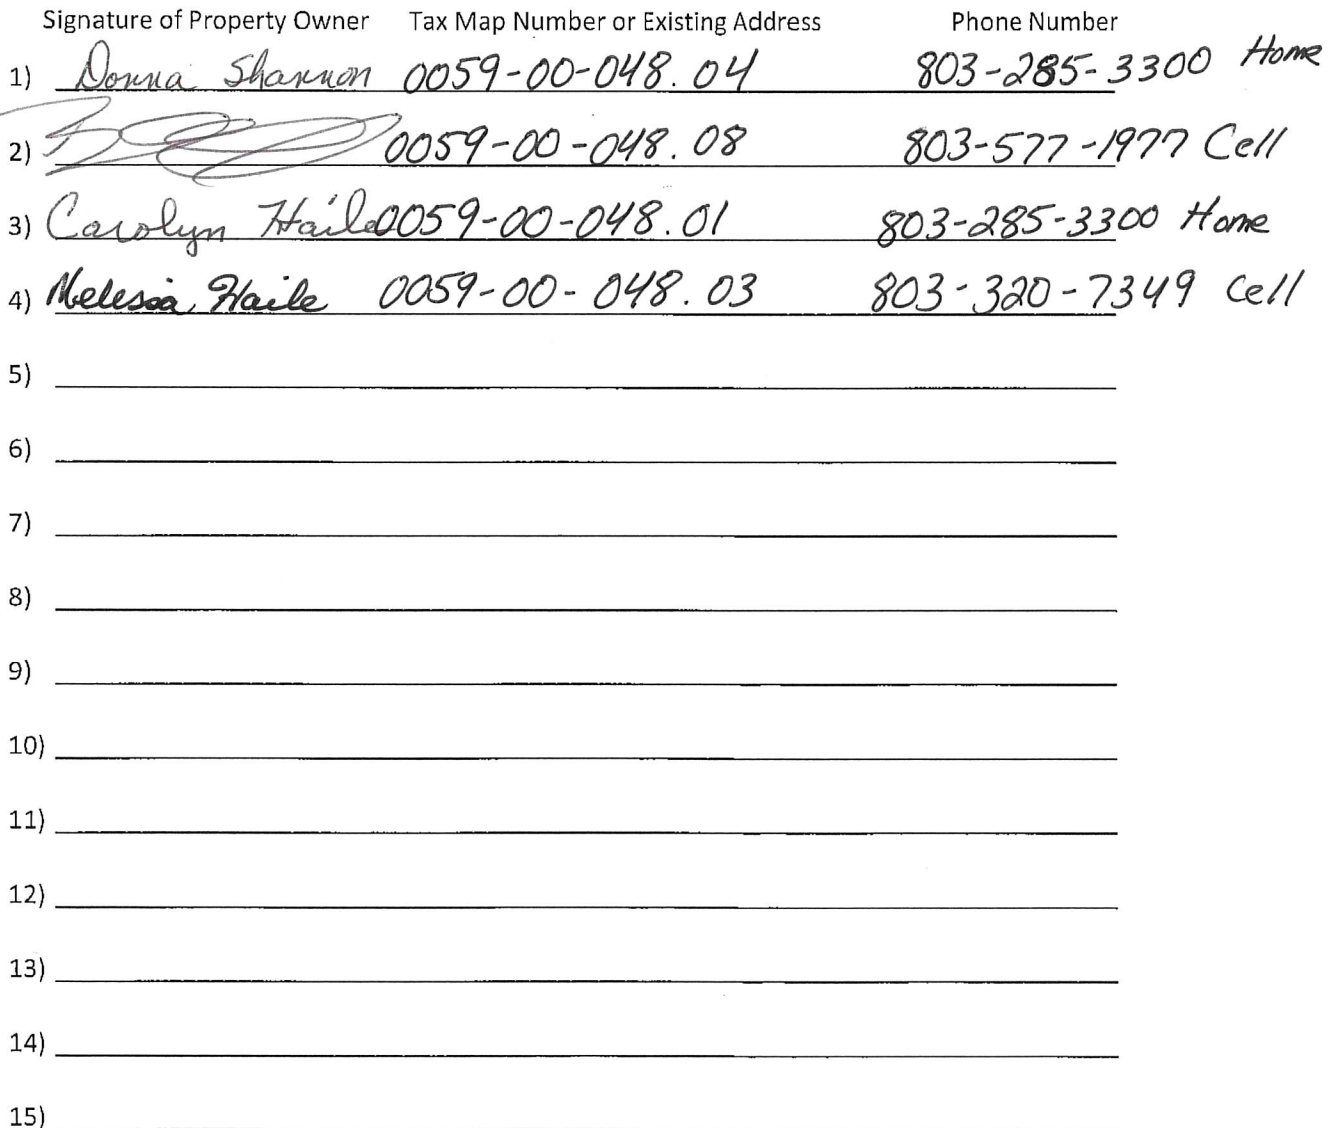 Signature of Property Owner Tax Map Number or Existing Address Phone Number
1) Donna Shannon 0059-00-048.04 803-285-3300 Home
2) 0059-00-048.08 803-577-1977 Cell
3) Carolyn Haile 0059-00-048.01 803-285-3300 Home
4) Melissa Haile 0059-00-048.03 803-320-7349 Cell
5)
6)
7)
8)
9)
10)
11)
12)
13)
14)
15)